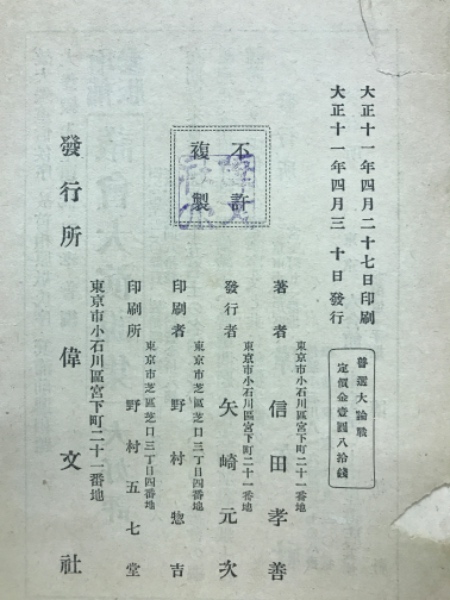 大正十一年四月二十七日印刷
大正十一年四月三十日發行
普選大論戰
定價金壹圓八拾錢
不許
複製
東京市小石川區宮下町二十一番地
著者 信田孝善
東京市小石川區宮下町二十一番地
發行者 矢崎元次
東京市芝區芝口三丁目四番地
印刷者 野村惣吉
東京市芝區芝口三丁目四番地
印刷所 野村五七堂
東京市小石川區宮下町二十一番地
發行所 偉文社